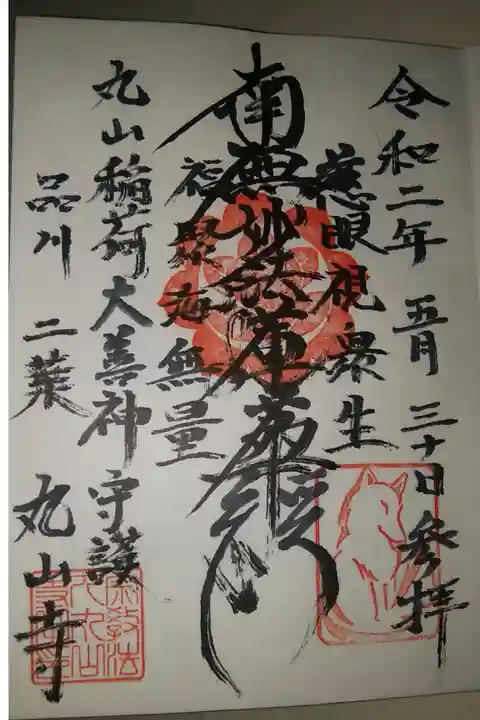 令和二年 五月 三十日 参拝
慈眼視衆生
南無妙法蓮華経
福聚海無量
丸山稲荷大善神 守護
品川 二葉 丸山寺